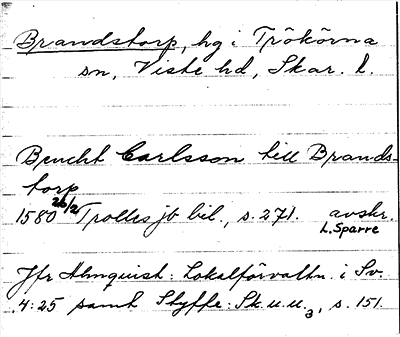 Brandstorp, hg i Trökörna
sn, Viste hd, Skar. l.
Bencht Carlsson till Brands-
torp
1580 26/2 Trolles jb bil., s. 271. avskr.
L. Sparre
Jfr Almquist: Lokalförvaltn. i Sv.
4:25 samt Styffe: Sk.u.u.3, s. 151.